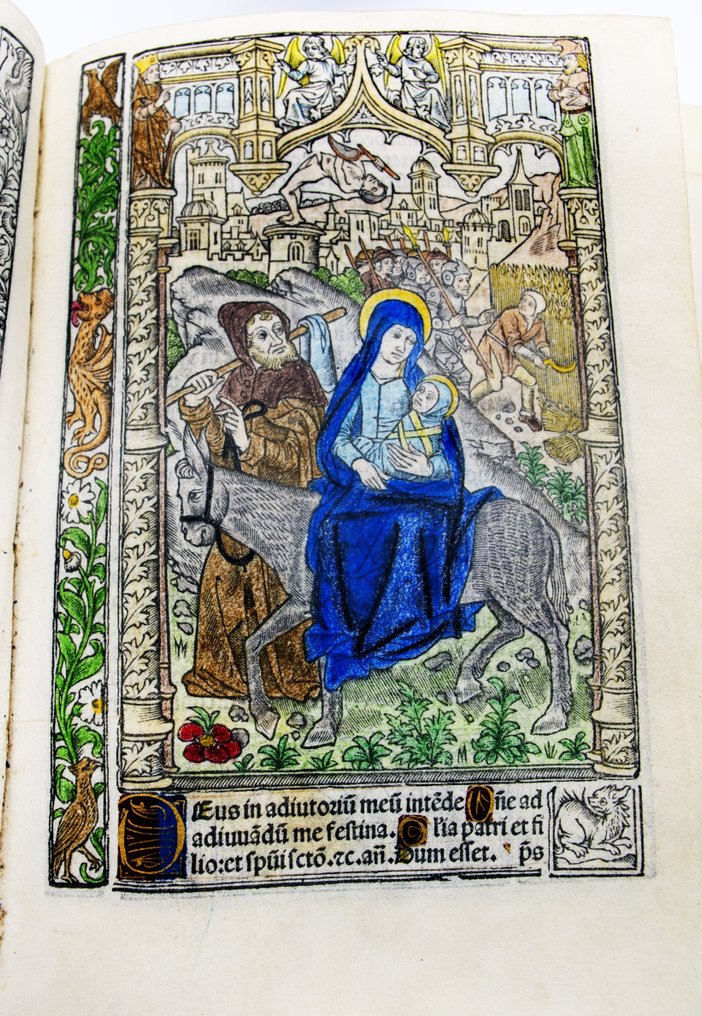 Deus in adiutoriū meū intēde Dn̄e ad
adiuuādū me festina. Gl'ia patri et fi
lio: et spūi sctō. ⁊c. añ. Dum esset. p̄s